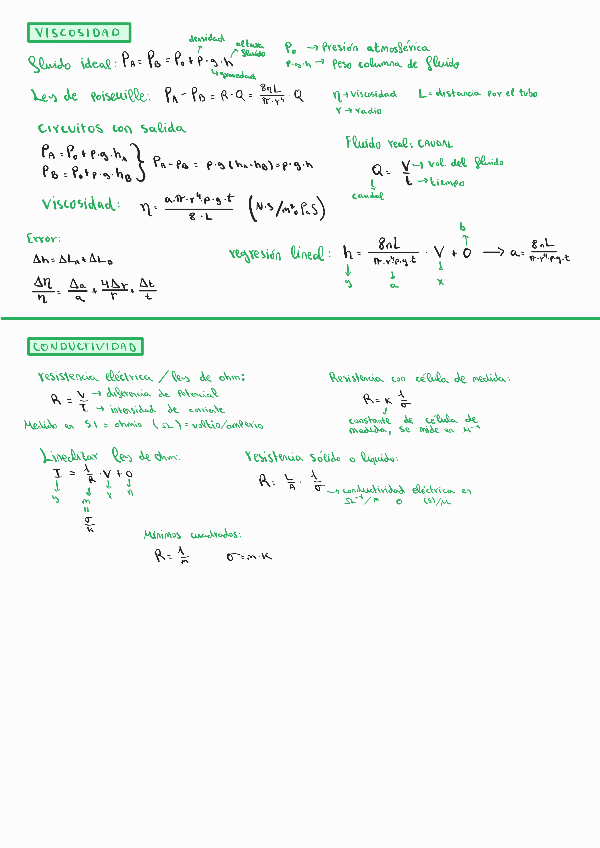 VISCOSIDAD
densidad
altura fluido
fluido ideal: P_A = P_B = P_0 + ρ·g·h
gravedad
P_0 → Presión atmosférica
ρ·g·h → Peso columna de fluido
Ley de poiseuille: P_A - P_B = R·Q = 8ηL/π·r⁴ · Q
η → viscosidad L = distancia por el tubo
r → radio
circuitos con salida
P_A = P_0 + ρ·g·h_A
P_B = P_0 + ρ·g·h_B
} P_A - P_B = ρ·g·(h_A - h_B) = ρ·g·h
Fluido real: CAUDAL
Q = V/t → vol. del fluido
→ tiempo
caudal
viscosidad: η = a·π·r⁴·ρ·g·t / 8·L (N·s/m² o Pa·s)
Error:
Δh = ΔL_A + ΔL_B
Δη/η = Δa/a + 4Δr/r + Δt/t
b
regresión lineal: h = 8ηL/π·r⁴ρ·g·t · V + 0 → a = 8ηL/π·r⁴·ρ·g·t
y a x
CONDUCTIVIDAD
resistencia eléctrica / ley de ohm:
R = V/I → diferencia de potencial
→ intensidad de corriente
Medido en S.I = ohmio (Ω) = voltio/amperio
Resistencia con célula de medida:
R = K 1/σ
constante de célula de
medida, se mide en m⁻¹
Linealizar ley de ohm:
I = 1/R · V + 0
y m x n
=
σ/k
resistencia sólido o líquido:
R = L/A · 1/σ
→ conductividad eléctrica en
Ω⁻¹/m o (S)/m
Mínimos cuadrados:
R = 1/m σ = m·K